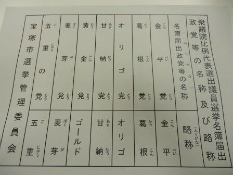 衆議院比例代表選出議員選挙名簿届出
政党等の名称及び略称
名簿届出政党等の名称 略称
金平党 金平
葛根党 葛根
オリゴ党 オリゴ
甘納党 甘納
黄金党 ゴールド
麦芽党 麦芽
五葷の党 五葷
宝塚市選挙管理委員会